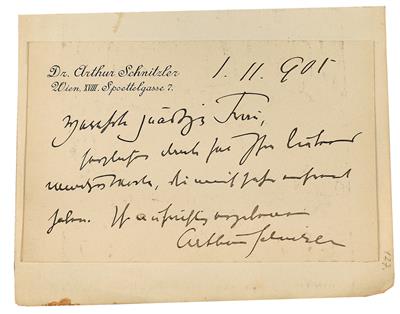 Dr. Arthur Schnitzler
Wien, XVIII. Spoettelgasse 7.
1. 11. 905
Verehrte gnädige Frau,
herzlichen Dank für Ihre
die mich sehr erfreut
haben. Ihr aufrichtig ergebener
Arthur Schnitzler
127.